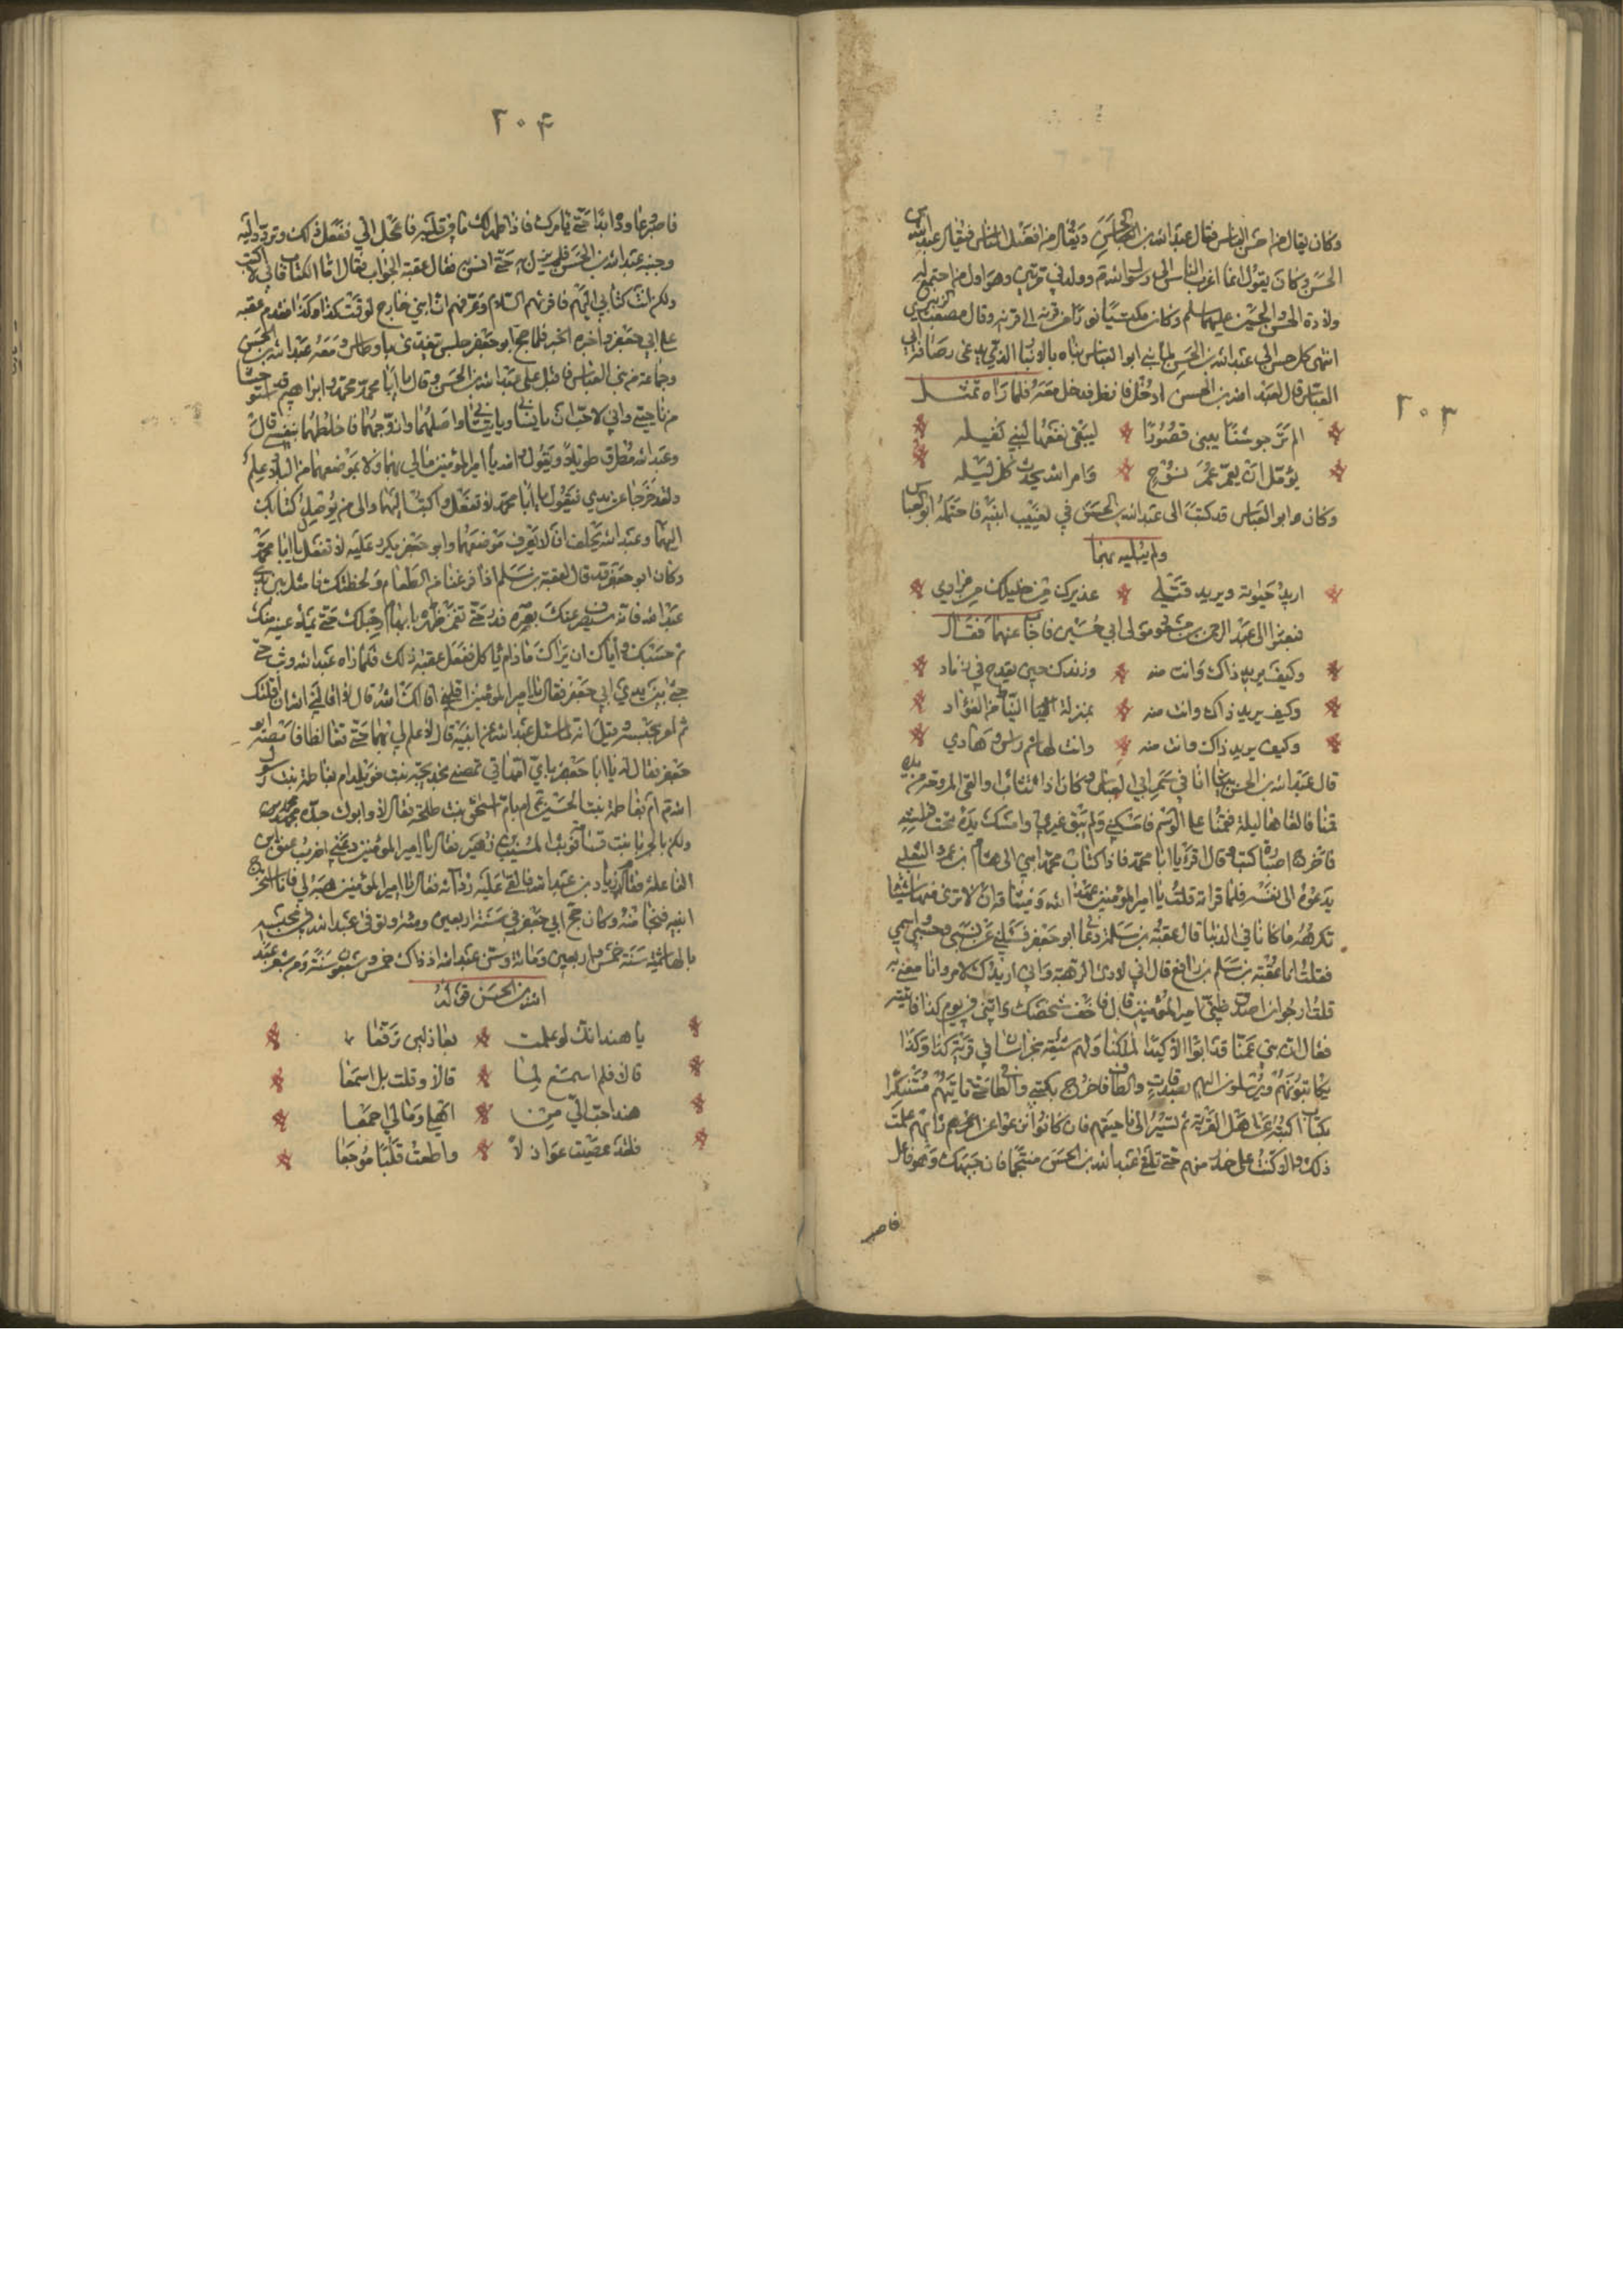 ٢٠٣
وكان يقال من احسن الناس فقال عبد الله بن الحسن ويقال من افضل الناس فيقال عبد الله بن
الحسن وكان يقول انا اقرب الناس الى رسول الله
ولادة الحسن والحسين عليهما السلم وقال مصعب الزبيري
انتهى كل حسن الى عبد الله بن الحسن ابو العباس بناه بالانبار الذي يدعى رصافة ابي
العباس قال لعبد الله بن الحسن ادخل فانظر فدخل معه فلما رآه تمثل
الم تر جوشنا يبنى قصورا * ليبقى نفعها لبني نفيله
يؤمل ان يعمر عمر نوح * وامر الله يحدث كل ليله
وكان ابو العباس قد كتب الى عبد الله بن الحسن في تغيب ابنيه فاحتمله ابو العباس
ولم يبليه بهما
اريد حيوته ويريد قتلي * عذيرك من خليلك من مرادي
فبعثوا الى عبد الرحمن بن مولى ابي حسين فاجاب عنهما فقال
وكيف يريد ذاك وانت منه * وزندك حين يقدح في زناد
وكيف يريد ذاك وانت منه * بمنزلة النياط من الفؤاد
وكيف يريد ذاك وانت منه * وانت لهاشم راس وهادي
قال عبد الله بن الحسن بينا انا في سمر ابي العباس وكان اذا تثاءب والقى المروحة من يده
قمنا فالقاها ليلة فقمنا فامسكني ولم يبق غيري وامسك يده تحت
فاخرج اضبارة كتب وقال اقرا يا ابا محمد فاذا كتاب محمد ابني الى هشام بن عمرو التغلبي
يدعوه الى نفسه فلما قراته قلت يا امير المؤمنين عهد الله وميثاقه ان لا ترى منهما شيئا
تكرهه ما كانا في الدنيا قال عقبة بن سلم دعا ابو جعفر فسالني عن نسبي وحسبي واسمي
فقلت انا عقبة بن سلم بن نافع قال اني لارى لك هيبة واني اريدك لامر وانا معني به
قلت ارجو ان اصدق ظن امير المؤمنين قال فاخف شخصك واتني في يوم كذا فاتيته
فقال ان بني عمنا قد ابوا الا كيدا لملكنا ولهم شيعة بخراسان في قرية كذا وكذا
يكاتبونهم ويرسلون اليهم بصدقات والطاف فاخرج بكسي والطاف حتى تاتيهم متنكرا
بكتاب اكتبه عن اهل القرية ثم تسير الى ناحيتهم فان كانوا نزعوا عن رايهم علمت
ذلك والا كنت على حذر منهم حتى تلقى عبد الله بن الحسن متخشعا فان جبهك وهو فاعل
فاصبر
٢٠۴
فاصبر وعاوده ابدا حتى يامرك فاذا ظهر لك ما في قلبه فاعجل الي ففعل ذلك وتردد اليه
وجبه عبد الله بن الحسن فلم يزل به حتى انس به فقال عقبة الجواب فقال اما الكتاب فاني لا اكتب
ولكن انت كتابي اليهم فاقرئهم السلام وعرفهم ان ابني خارج لوقت كذا وكذا فقدم عقبه
على ابي جعفر واخبره الخبر فلما حج ابو جعفر جلس يتغدى باوطاس ومعه عبد الله بن الحسن
وجماعة من بني العباس فاقبل على عبد الله بن الحسن وقال يا ابا محمد محمد وابراهيم قد استوحشا
من ناحيتي واني لاحب ان ياتياني واصلهما وازوجهما فاخلطهما بنفسي قال
وعبد الله مطرق طويلا ويقول والله يا امير المؤمنين مالي بهما ولا بموضعهما من البلاد علم
ولقد خرجا عن يدي فيقول يا ابا محمد لا تفعل واكتب اليهما والى من يوصل كتابك
اليهما وعبد الله يحلف انه لا يعرف موضعهما وابو جعفر يكرر عليه لا تفعل يا ابا محمد
وكان ابو جعفر قد قال لعقبة بن سلم اذا فرغنا من الطعام ولحظتك فامثل بين يدي
عبد الله فانه سيصرف عنك بصره فدر حتى تغمز ظهره بابهام رجلك حتى يملا عينيه منك
ثم حسبك واياك ان يراك ما دام ياكل ففعل عقبة ذلك فلما راه عبد الله وثب حتى
جثا بين يدي ابي جعفر فقال يا امير المؤمنين اقلني اقالك الله قال لا اقالني الله ان اقلتك
ثم امر بحبسه وقيل انه لما سئل عبد الله عن ابنيه قال لا علم لي بهما حتى تغالظا فامضه ابو
جعفر فقال له يا ابا جعفر باي امهاتي تمصني بخديجة بنت خويلد ام بفاطمة بنت رسول
الله ام بفاطمة بنت الحسين ام بام اسحق بنت طلحة فقال لا
ولكن بالجرباء بنت قسامة فقال يا امير المؤمنين دعني اضرب عنق ابن
الفاعلة فقام زياد بن عبيد الله فالقى عليه رداءه فقال يا امير المؤمنين هبه لي فانا استخرج
ابنيه فنجا منه وكان حج ابي جعفر في سنة اربعين ومئة وتوفى عبد الله في محبسه
بالهاشمية سنة خمس واربعين ومائة وسن عبد الله اذ ذاك خمس وسبعون سنة ومن شعر عبد
الله بن الحسن قوله
يا هند انك لو علمت * بعاذلين تزقعا
قالا فلم اسمع لما * قالا وقلت بل اسمعا
هند احب الي من * اهلي ومالي اجمعا
فلقد عصيت عواذلا * واطعت قلبا موجعا